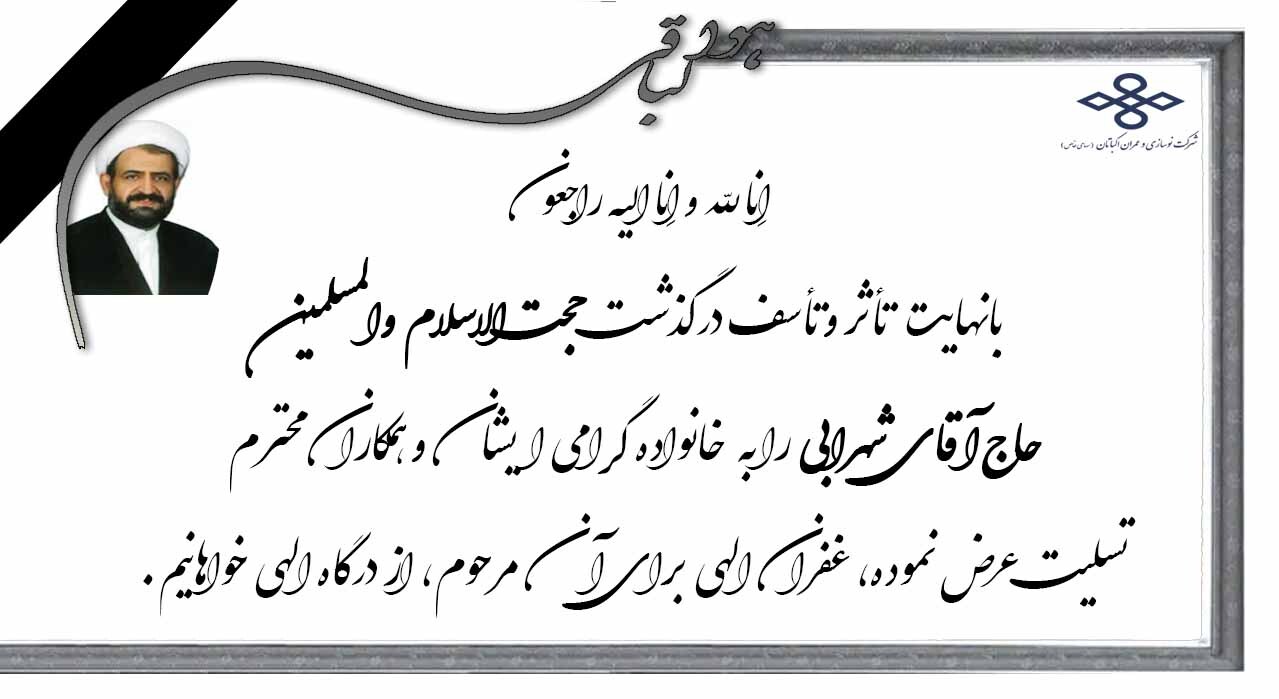 هوالباقی
شرکت نوسازی و عمران اکباتان (سهامی خاص)
اِنا لله و اِنا الیه راجعون
بانهایت تأثر و تأسف درگذشت حجت الاسلام والمسلمین
حاج آقای شهرابی را به خانواده گرامی ایشان و همکاران محترم
تسلیت عرض نموده، غفران الهی برای آن مرحوم، از درگاه الهی خواهانیم.